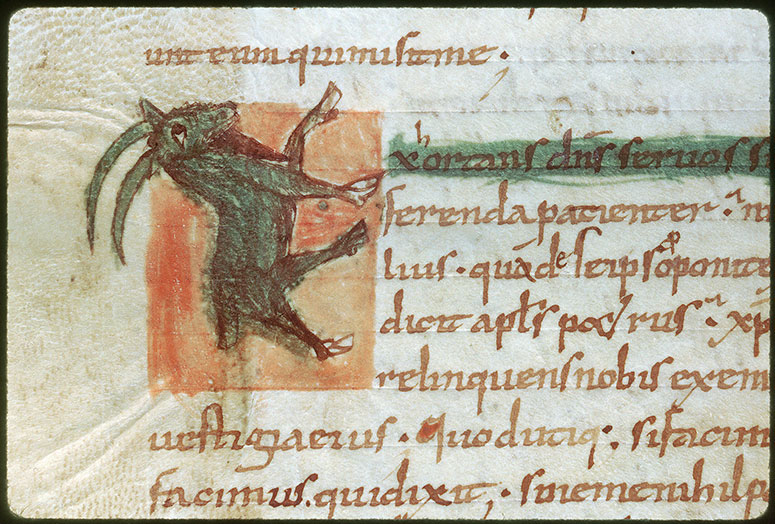 unt eum qui misit me.
xhortans dn̄s seruos s
serenda patienter.
lius. qua de se ipso
dicit apl̄s
relinquens nobis exem
uestigia eius. Quod utiq; si facim
facimus. qui dixit; sine me nihil p